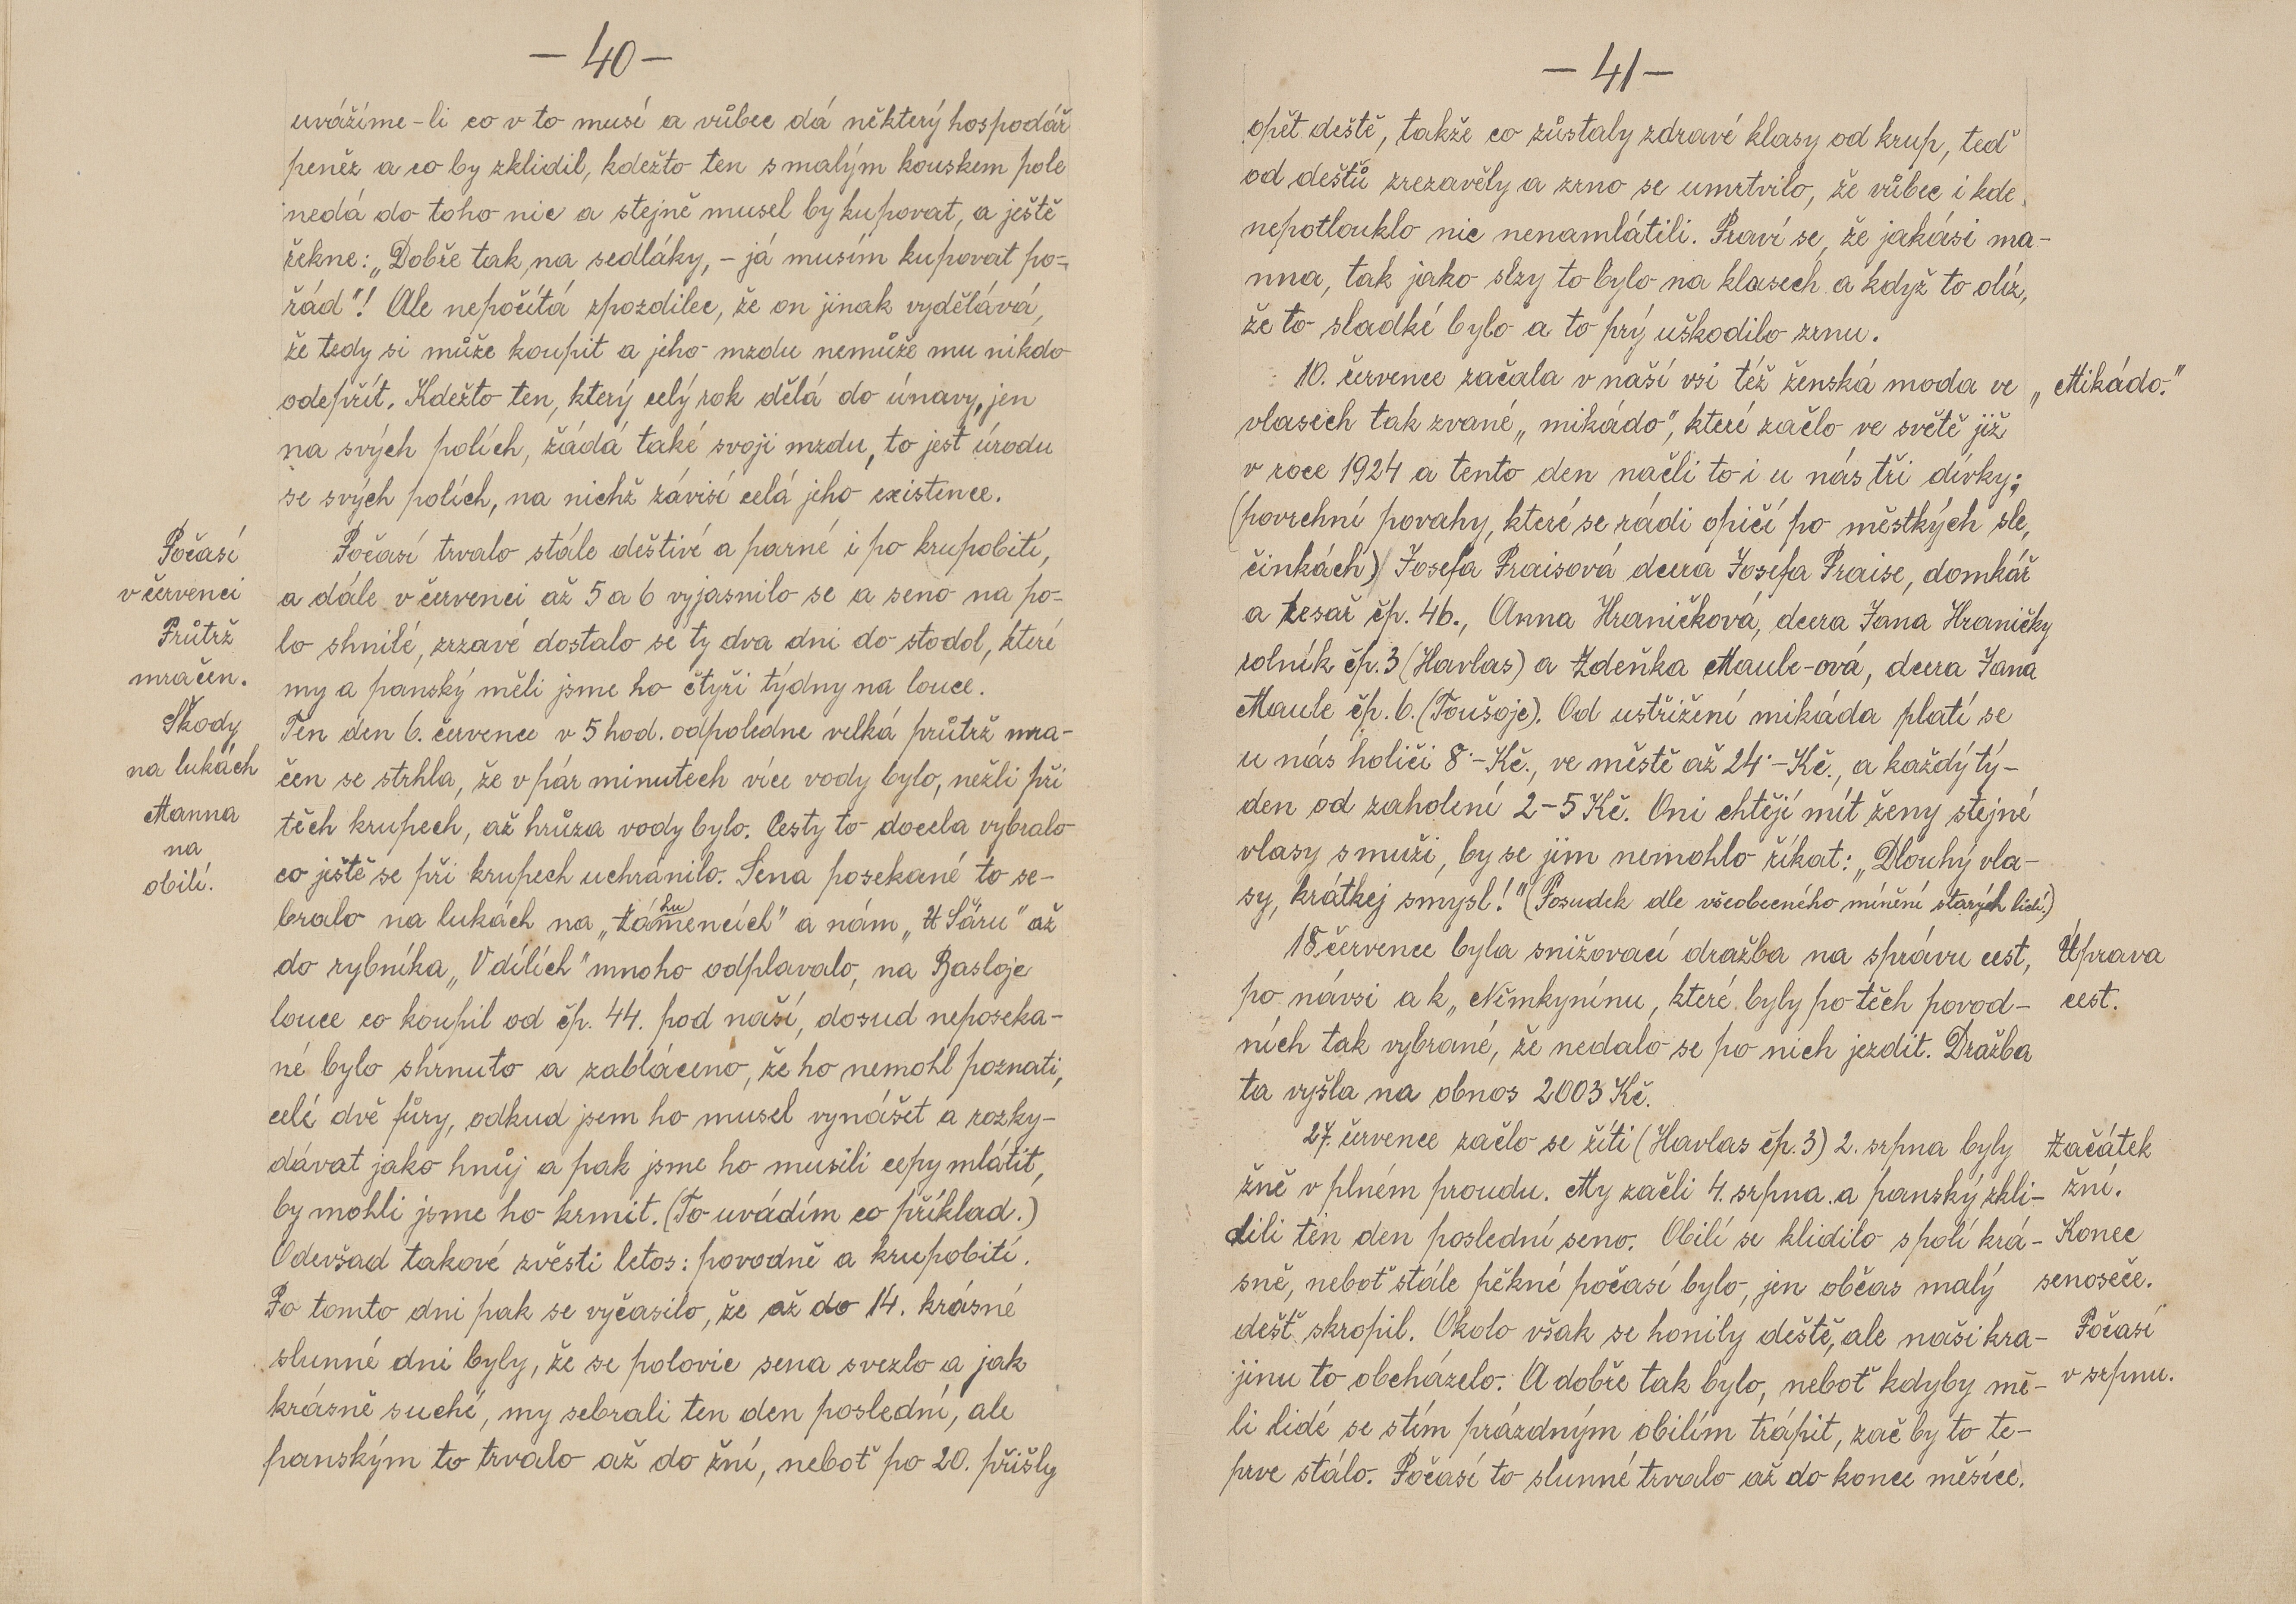 — 40 —
uvážíme-li co v to musí a vůbec dá některý hospodář
peněz a co by zklidil, kdežto ten s malým kouskem pole
nedá do toho nic a stejně musel by kupovat, a ještě
řekne: „Dobře tak na sedláky, – já musím kupovat po-
řád"! Ale nepočítá zpozdilec, že on jinak vydělává,
že tedy si může koupit a jeho mzdu nemůže mu nikdo
odepřít. Kdežto ten, který celý rok dělá do únavy, jen
na svých polích, žádá také svoji mzdu, to jest úrodu
se svých polích, na nichž závisí celá jeho existence.
Počasí
v červenci
Průtrž
mračen.
Škody
na lukách
Manna
na
obilí.
Počasí trvalo stále deštivé a parné i po krupobití,
a dále v červenci až 5 a 6 vyjasnilo se a seno na po-
lo shnilé, zrzavé dostalo se ty dva dni do stodol, které
my a panský měli jsme ho čtyři týdny na louce.
Ten den 6. července v 5 hod. odpoledne velká průtrž mra-
čen se strhla, že v pár minutech více vody bylo, nežli při
těch krupech, až hrůza vody bylo. Cesty to docela vybralo
co ještě se při krupech uchránilo. Sena posekané to se-
bralo na lukách na „Zámencích" a nám „U Sáru" až
do rybníka „V dílích" mnoho odplavalo, na Basloje
louce co koupil od čp. 44. pod naší, dosud neposeka-
né bylo shrnuto a zabláceno, že ho nemohl poznati,
celé dvě fůry, odkud jsem ho musel vynášet a rozky-
dávat jako hnůj a pak jsme ho musili cepy mlátit,
by mohli jsme ho krmit. (To uvádím co příklad.)
Odevšad takové zvěsti letos: povodně a krupobití.
Po tomto dni pak se vyčasilo, že až do 14. krásné
slunné dni byly, že se polovic sena svezlo a jak
krásně suché, my sebrali ten den poslední, ale
panským to trvalo až do žní, neboť po 20. přišly
— 41 —
opět deště, takže co zůstaly zdravé klasy od krup, teď
od dešťů zrezavěly a zrno se umrtvilo, že vůbec i kde
nepotlouklo nic nenamlátili. Praví se, že jakási ma-
nna, tak jako slzy to bylo na klasech a když to olíz,
že to sladké bylo a to prý uškodilo zrnu.
10. července začala v naší vsi též ženská moda ve
„Mikádo."
vlasech tak zvané „mikádo", které začlo ve světě již
v roce 1924 a tento den načli to i u nás tři dívky;
(povrchní povahy, které se rádi opičí po městkých sle,
činkách) Josefa Praisová dcera Josefa Praise, domkář
a tesař čp. 46., Anna Hraničková, dcera Jana Hraničky
rolník čp. 3 (Havlas) a Zdeňka Maule-ová, dcera Jana
Maule čp. 6. (Toušoje). Od ustřižení mikáda platí se
u nás holiči 8·– Kč., ve městě až 24·– Kč., a každý tý-
den od zaholení 2–5 Kč. Oni chtějí mít ženy stejné
vlasy s muži, by se jim nemohlo říkat: „Dlouhý vla-
sy, krátkej smysl!" (Posudek dle všeobecného mínění starých lidí.)
18 července byla snižovací dražba na správu cest,
Úprava
cest.
po návsi a k „Němkynínu, které byly po těch povod-
ních tak vybrané, že nedalo se po nich jezdit. Dražba
ta vyšla na obnos 2003 Kč.
27. července začlo se žíti (Havlas čp. 3) 2. srpna byly
Začátek
žní.
žně v plném proudu. My začli 4. srpna a panský zkli-
dili ten den poslední seno. Obilí se klidilo s polí krá-
Konec
senoseče.
sně, neboť stále pěkné počasí bylo, jen občas malý
dešť skropil. Okolo však se honily deště, ale naši kra-
Počasí
v srpnu.
jinu to obcházelo. A dobře tak bylo, neboť kdyby mě-
li lidé se stím prázdným obilím trápit, zač by to te-
prve stálo. Počasí to slunné trvalo až do konce měsíce.